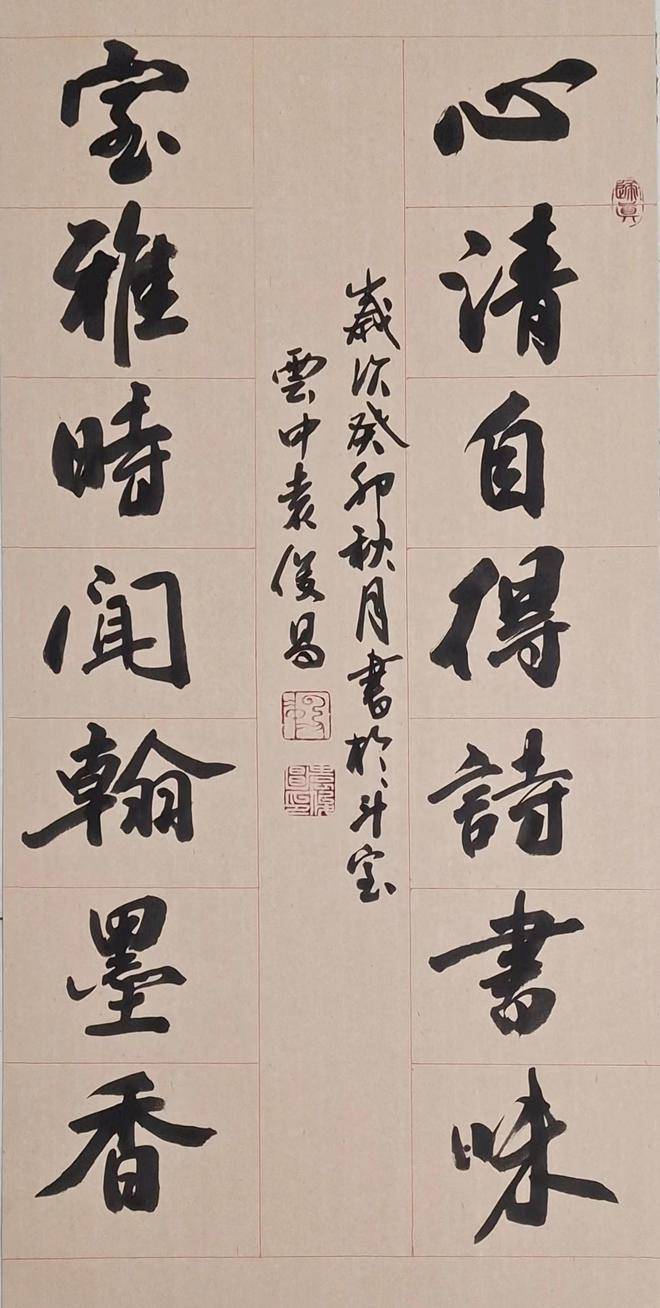 心清自得詩書味
歲次癸卯秋月書於斗室
雲中袁俊昌
室雅時聞翰墨香